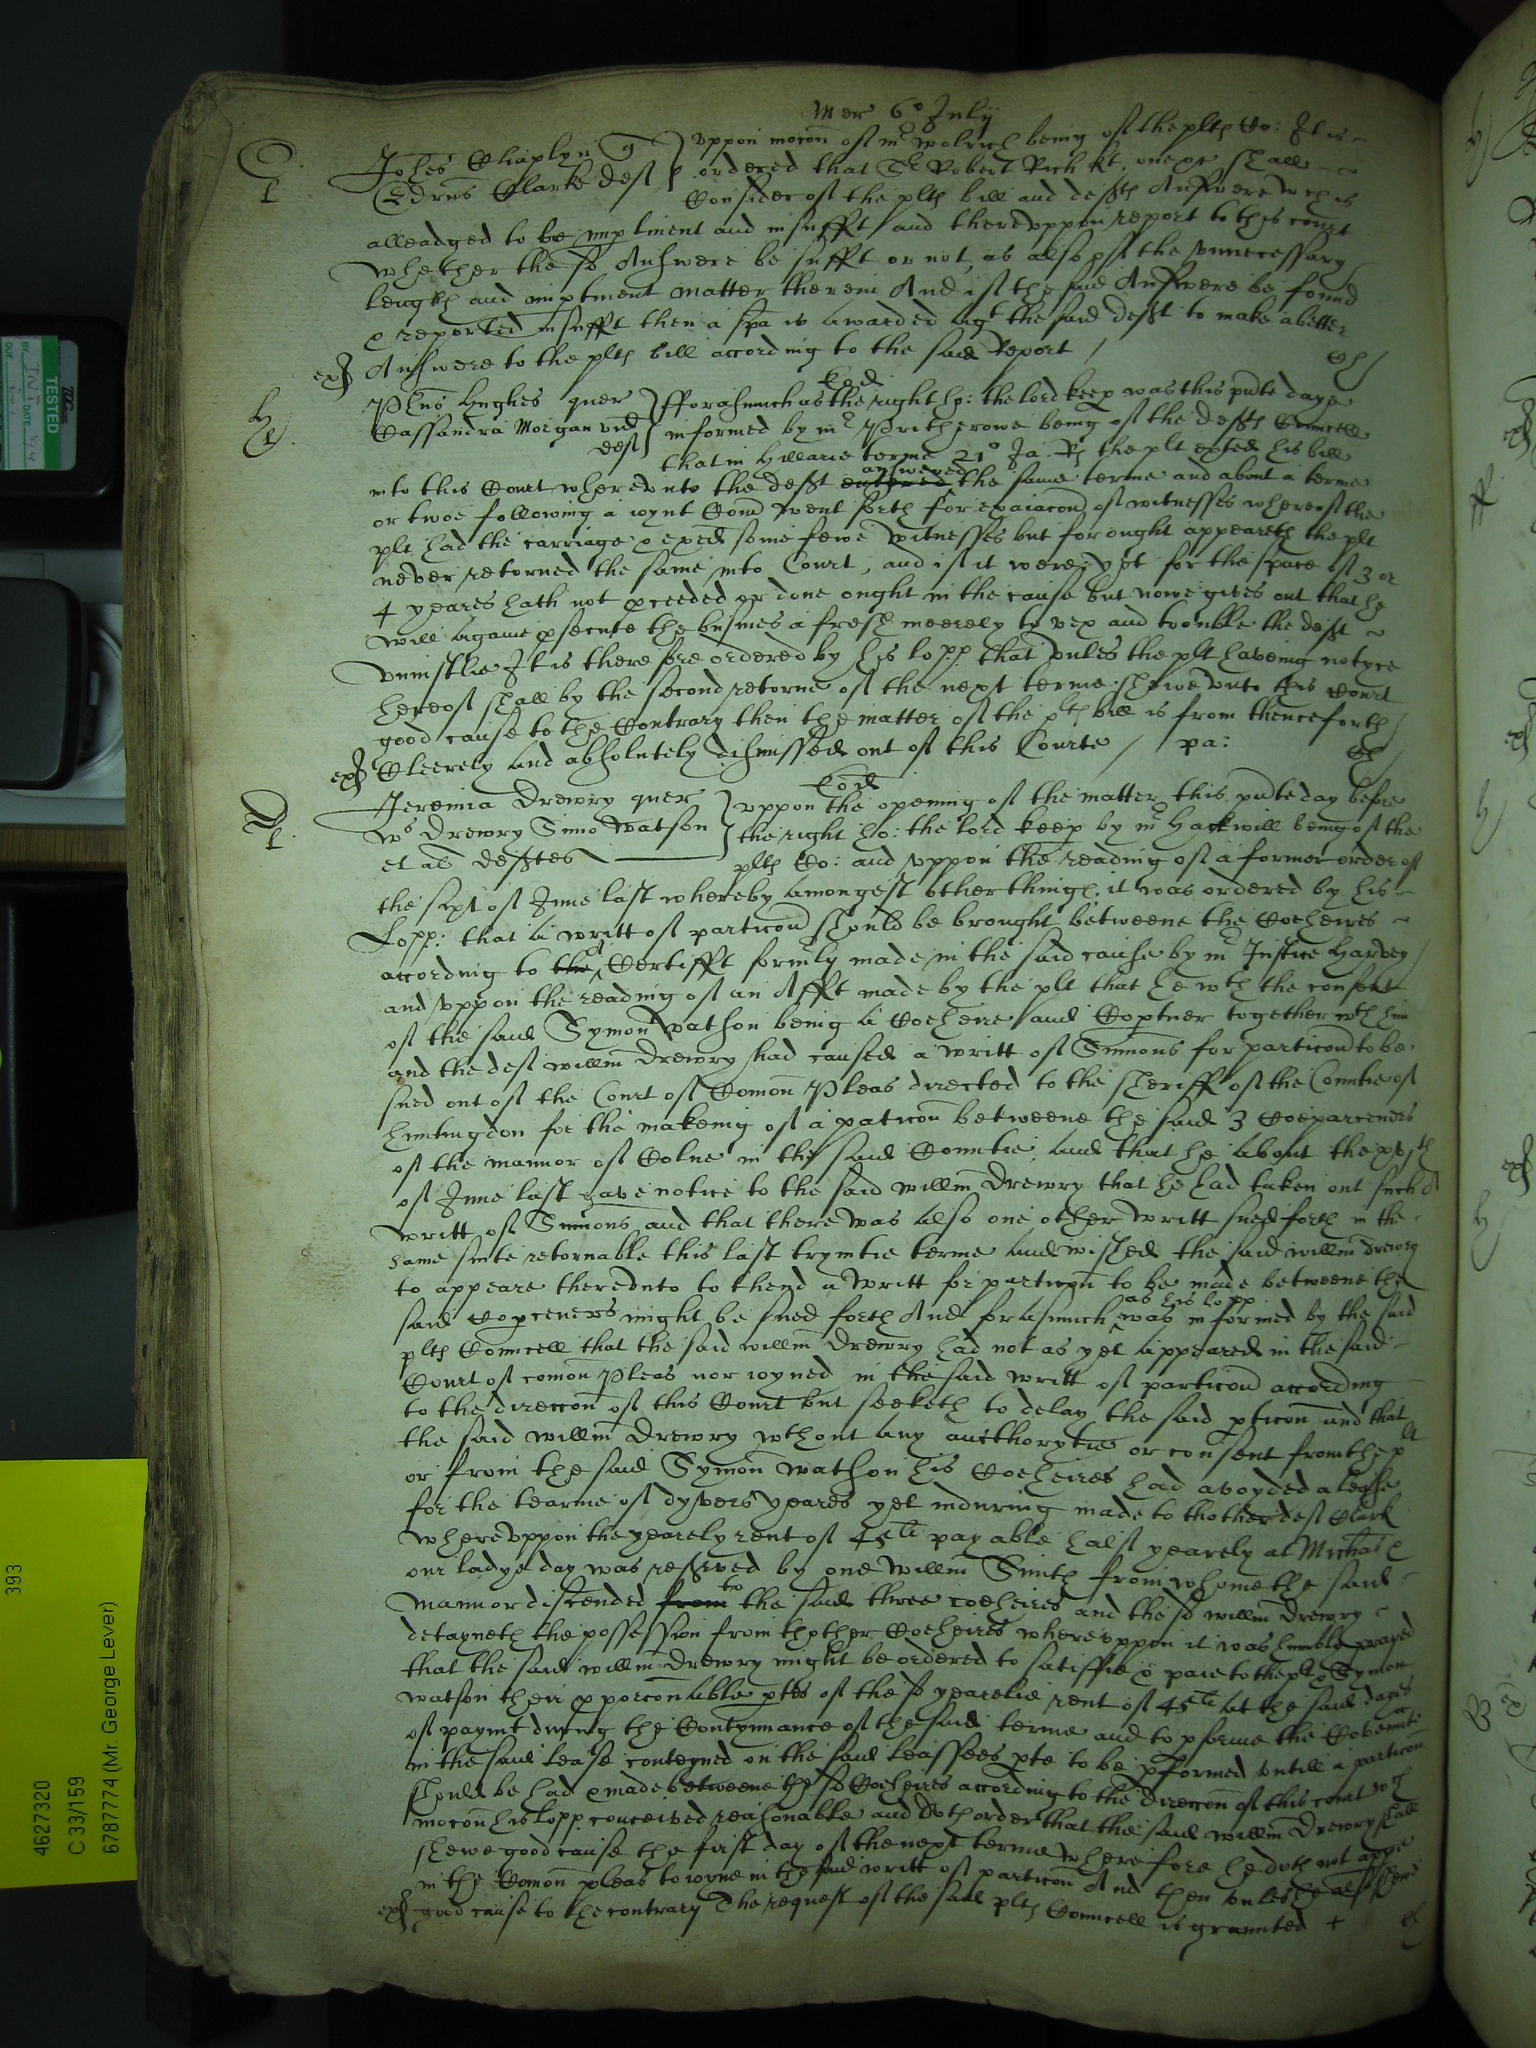 Mer 6º Julij
Johes Chaplyn q } uppon mocon of mr Wolrich being of the plts Co: It is
Edrus Clarke deft } ordered that Sr Robert Rich kt. one &c shall
Consider of the plts bill and defts Answere wch is
alleadged to be impertinent and insufft and thereuppon report to this court
whether the sd Answere be sufft or not, as also of the unnecessary
length and imptinent matter therein And if the said Answere be found
& reported insufft then a spa is awarded agt the said deft to make a better
exr Answere to the plts bill according to the said Report /
Hughes quer } Fforasmuch as the right ho: the lord keep was this pnte daye
Cassandra Morgan vid } informed by mr Pritherowe being of the defts Councell
deft } that in Hillarie terme 21º Ja: Rs the plt exhted his bill
into this Court whereunto the deft entered answered the same terme and about a terme
or twoe following a ioynt Comn went forth for exaiacon of witnesses whereof the
plt had the carriage & exed some fewe witnesses but for ought appeareth the plt
never retorned the same into Court, and if it were, yet for the space of 3 or
4 yeares hath not pceeded or done ought in the cause but nowe gives out that he
will againe psecute the busines a fresh meerely to vex and trouble the deft
uniustlie It is therefore ordered by his lopp that unles the plt haveing notyce
hereof shall by the second retorne of the next terme shewe unto this Court
good cause to the Contrary then the matter of the plts bill is from thenceforth
exr Cleerely and absolutely dismissed out of this Courte / pa:
Jeremia Drewry quer } uppon the opening of the matter this pnte day before
Ws Drewry Simo Watson } the right ho: the lord keep by mr Hackwill being of the
et al defts } plts Co: and uppon the reading of a former order of
the sixt of June last whereby amongest other things it was ordered by his
Lopp: that a writt of particon should be brought betweene the Coeheires
according to the a Certifft formly made in the said cause by mr Justice Harvey
and uppon the reading of an Afft made by the plt that he wth the consent
of the said Symon Watson being a Coeheire and Coptner together wth him
and the deft willm Drewry had caused a writt of Sumons for particon to be
sued out of the Court of Comon Pleas directed to the sheriff of the Countie of
Huntingdon for the makeing of a paticon betweene the said 3 Coeparceners
of the mannor of Colne in the said Countie, and that he about the xvth
of June last gave notice to the said willm Drewry that he had taken out such a
writt of Sumons and that there was also one other writt sued forth in the
same suite retornable this last trynitie terme and wished the said willm Drewry
to appeare thereunto to thend a writt for particon to be made betweene the
said Copceners might be sued forth And forasmuch as his lopp was informed by the said
plts Councell that the said willm Drewry had not as yet appeared in the said
Court of comon Pleas nor ioyned in the said writt of particon according
to the direccon of this Court but seeketh to delay the said pticon and that
the said willm Drewry wthout any aucthorytie or consent from the plt
or from the said Symon Watson his Coeheires had avoyded a lease
for the tearme of dyvers yeares yet induring made to thother deft Clark
whereuppon the yearely rent of 45li payable halfe yearely at Michas &
our ladye day was reserved by one willm Smith from whome the said
mannor discended from to the said three coeheires and the sd willm Drewry
detayneth the possession from thother Coeheires whereuppon it was humble prayed
that the said willm Drewry might be ordered to satisfie & paie to the plt & Symon
Watson their pporconable ptes of the sd yearelie rent of 45li at the said dayes
of paymt during the Contynuance of the said terme and to pforme the Covennts
in the said lease conteyned on the said leassees pte to be pformed untill a particon
should be had & made betweene the sd Coeheires according to the direccon of this court wch
mocon his lopp conceived reasonable and doth order that the said willm Drewry shall
shewe good cause the first day of the next terme wherefore he doth not appe
in the Comon pleas to ioyne in the said writt of particon And then unles he
exr good cause to the contrary The request of the said plts Councell is graunted +
TESTED
DUE
BY
DATE
393
4627320
C 33/159
6787774 (Mr. George Lever)